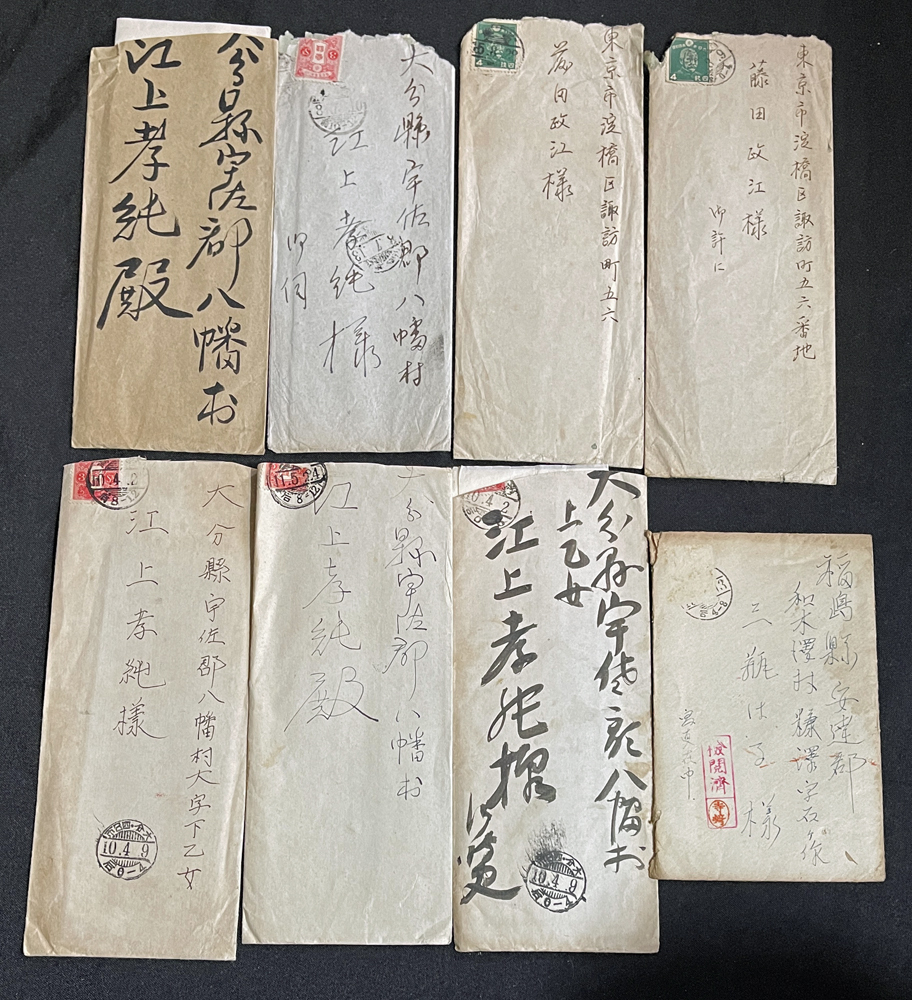 分縣宇佐郡八幡村
江上孝純殿
大分縣宇佐郡八幡村
江上孝純様
東京市淀橋区諏訪町五六
藤田政江様
4
東京市淀橋区諏訪町五六番地
藤田政江様
御許に
4
大分縣宇佐郡八幡村大字下乙女
江上孝純様
10.4.2
后8-12
10.4.9
分縣宇佐郡八幡村
江上孝純殿
11.5.24
后8-12
大分縣宇佐郡八幡村
上乙女
江上孝純様
10.4.2
10.4.9
福島縣安達郡
和木澤村糠澤字石ケ作
三瓶
様
検閲済